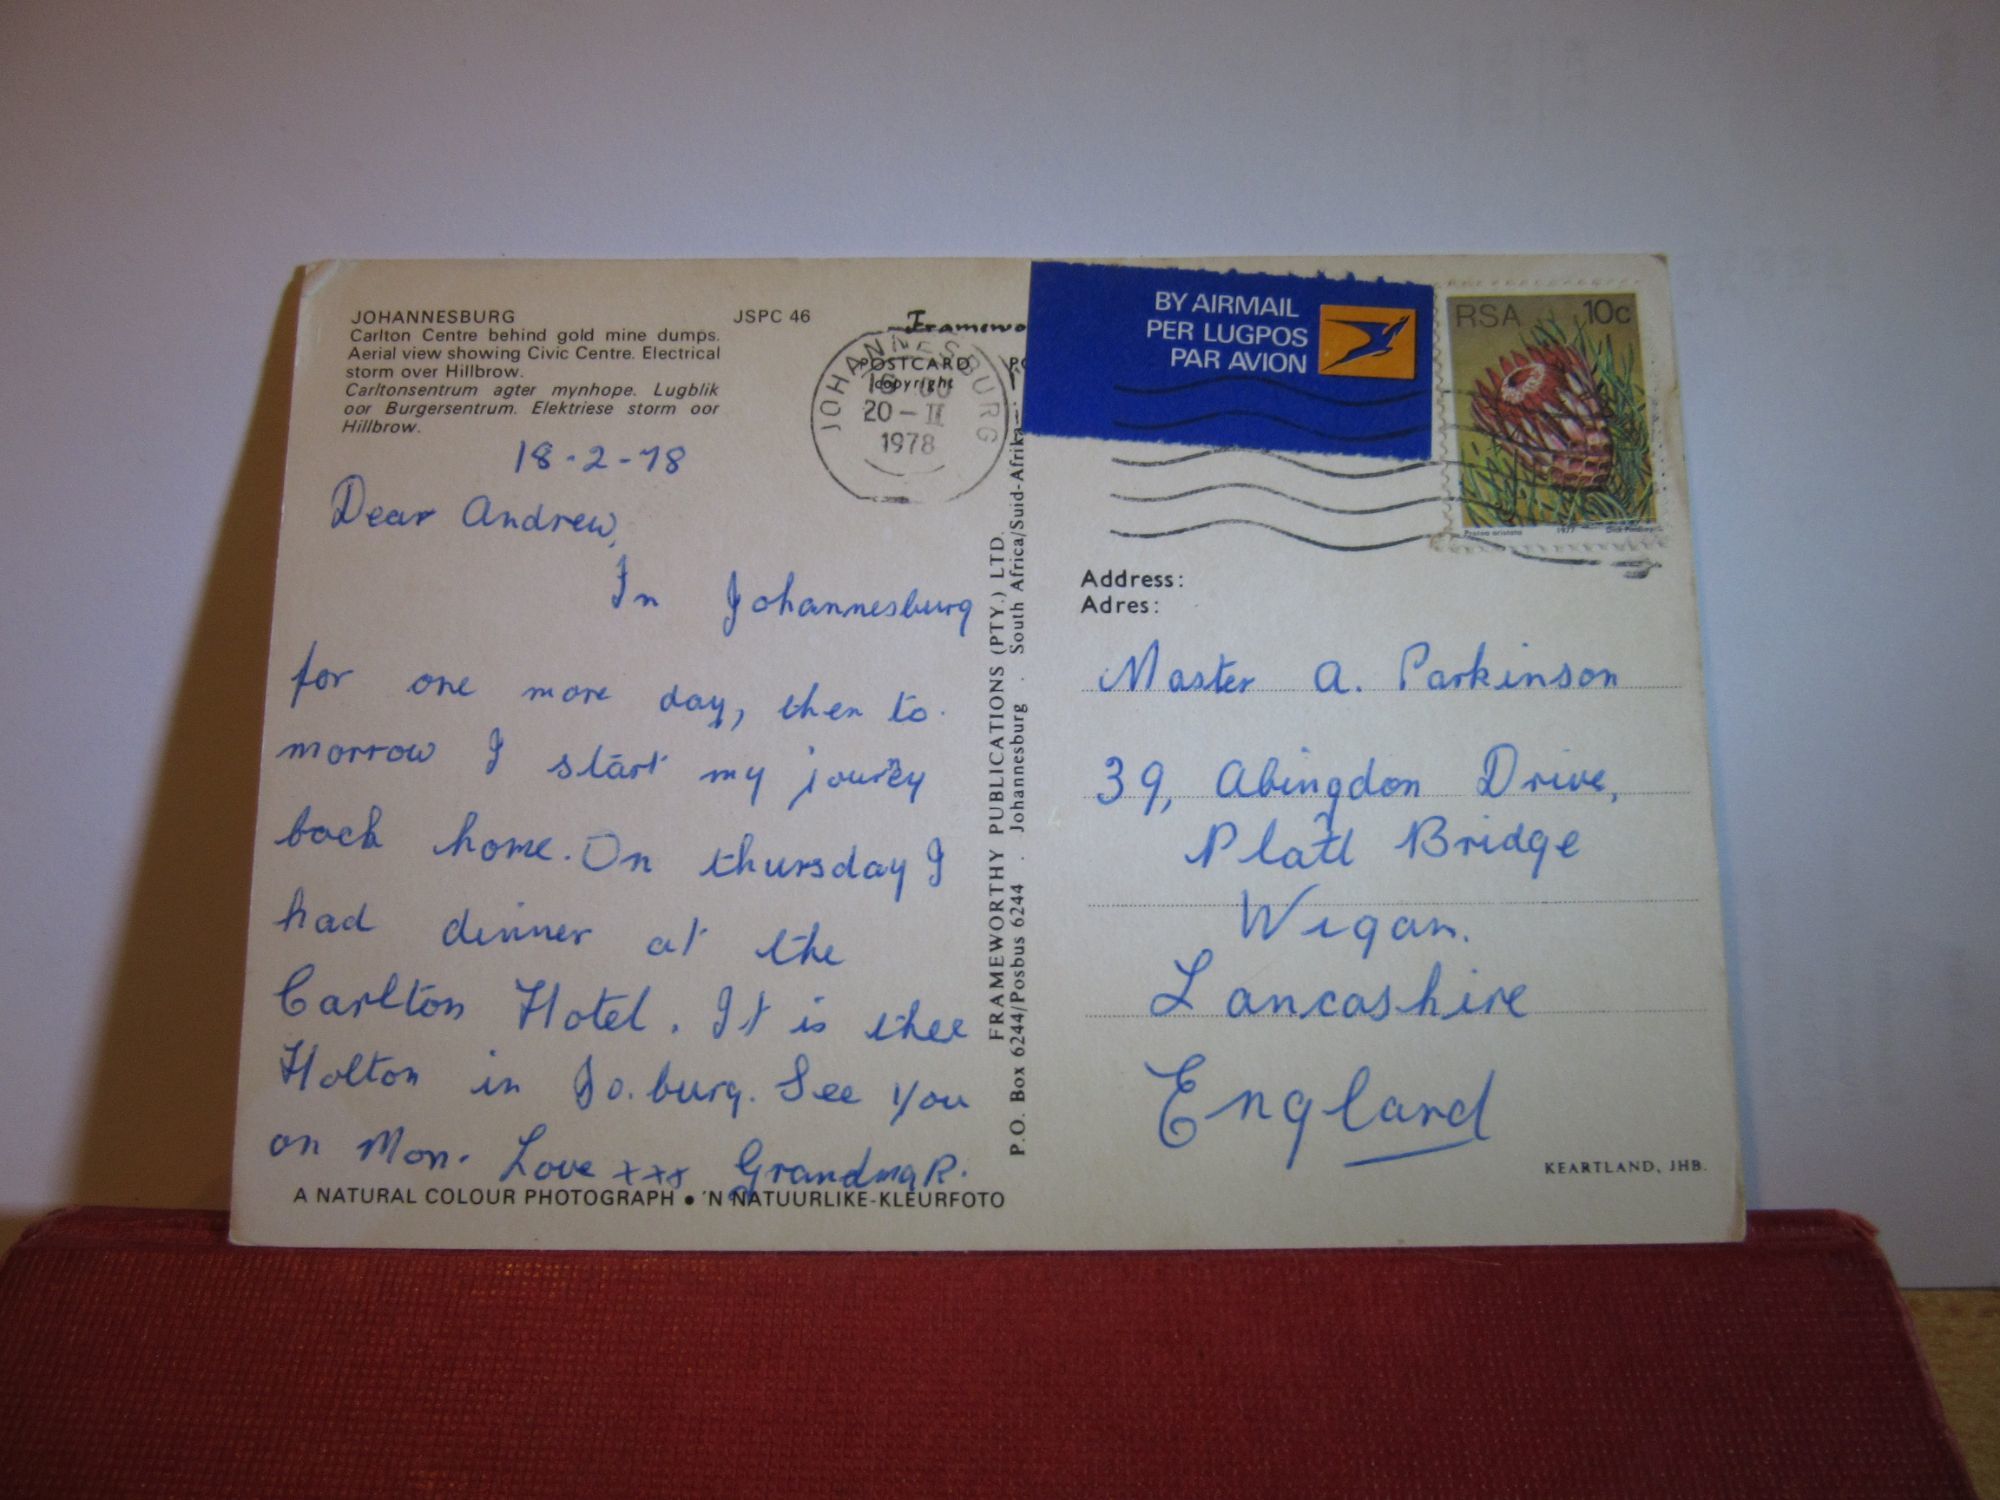 JOHANNESBURG
JSPC 46
Carlton Centre behind gold mine dumps.
Aerial view showing Civic Centre. Electrical
storm over Hillbrow.
Carltonsentrum agter mynhope. Lugblik
oor Burgersentrum. Elektriese storm oor
Hillbrow.
18-2-78
Dear Andrew,
In Johannesburg
for one more day, then to.
morrow I start my
back home. On thursday I
had dinner at the
Carlton Hotel. It is thee
Holton in Jo.burg. See you
on Mon. Love xxx Grandma R.
A NATURAL COLOUR PHOTOGRAPH • 'N NATUURLIKE-KLEURFOTO
Framewo
POSTCARD
copyright
JOHANNESBURG
20-II
1978
FRAMEWORTHY PUBLICATIONS (PTY.) LTD.
P.O. Box 6244/Posbus 6244 . Johannesburg . South Africa/Suid-Afrika
BY AIRMAIL
PER LUGPOS
PAR AVION
RSA 10c
1977
Address:
Adres:
Master A. Parkinson
39, Abingdon Drive,
Platt Bridge
Wigan.
Lancashire
England
KEARTLAND, JHB.